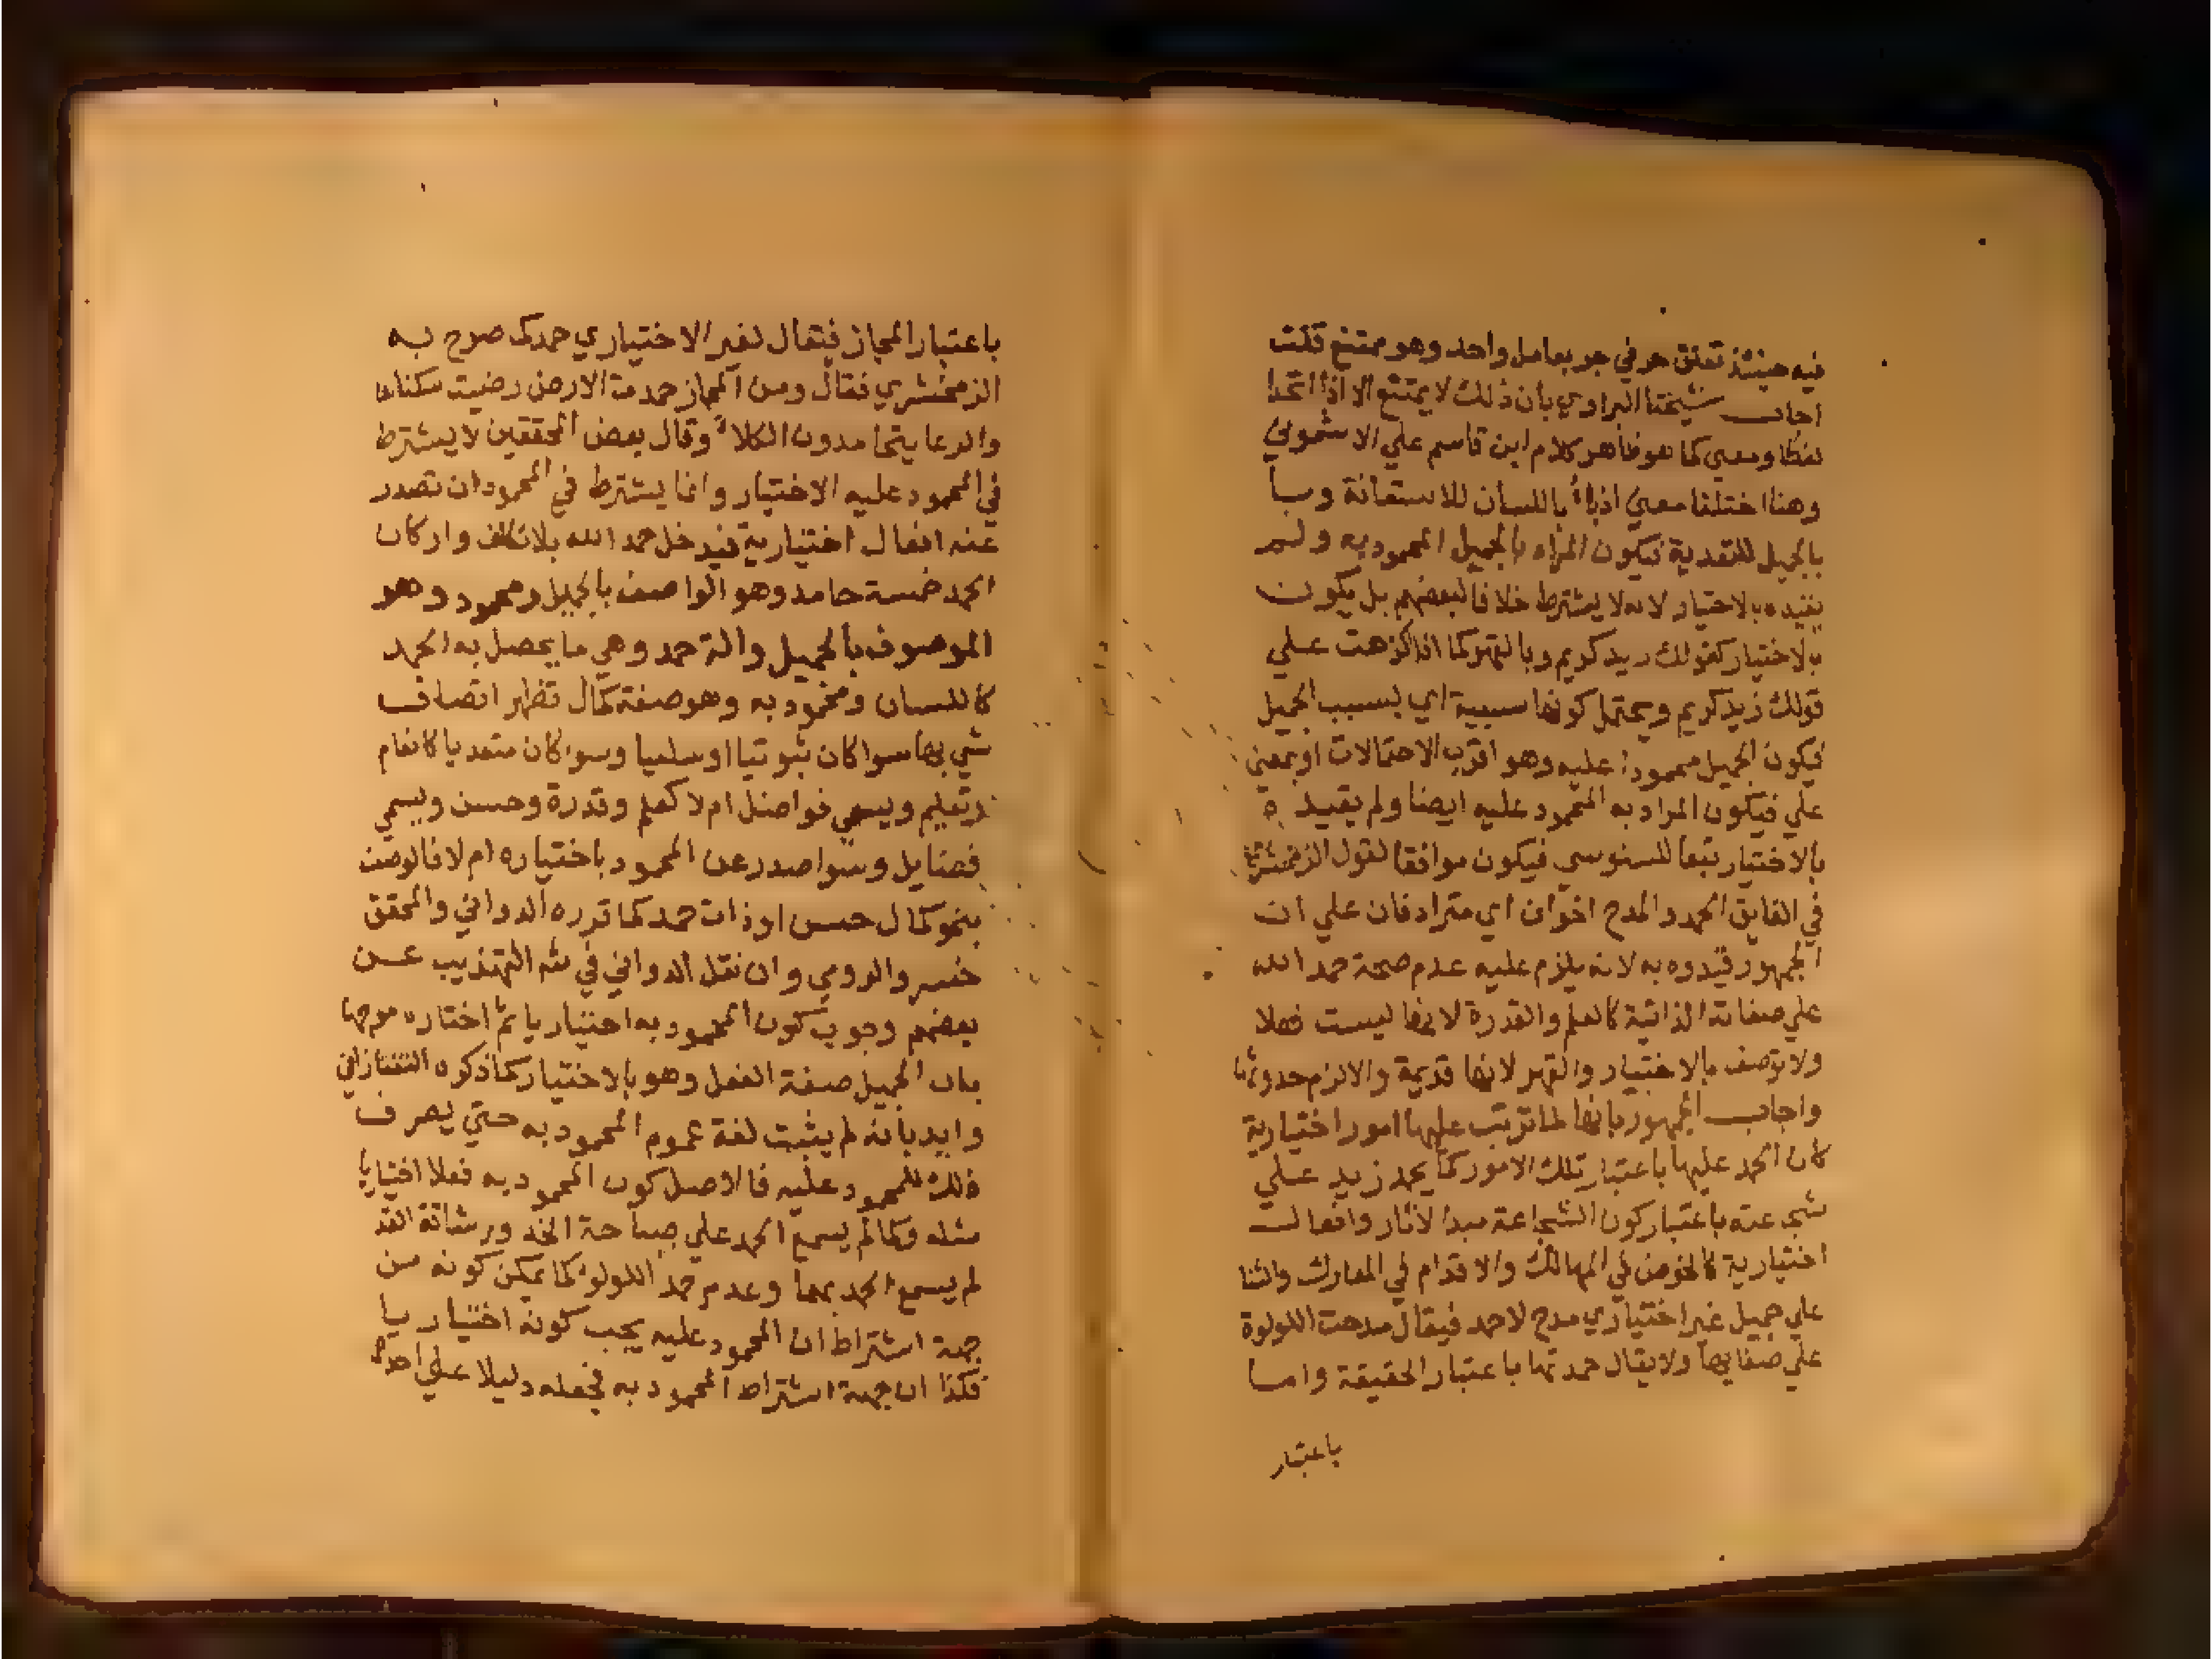 فيه حينئذ تعلق حرفي جر بعامل واحد وهو ممتنع قلت
اجاب شيخنا البراوي بأن ذلك لا يمتنع الا اذا اتحدا
لفظا ومعني كما هو ظاهر كلام ابن قاسم علي الاشموني
وهنا اختلفا معني اذ باء باللسان للاستعانة وبا
بالجميل للتعدية فيكون المراد بالجميل المحمود به ولم
يقيده بالاختيار لانه لا يشترط خلافا لبعضهم بل يكون
بالاختيار كقولك زيد كريم وبالقهر كما اذا اكرهت علي
قولك زيد كريم ويحتمل كونها سببية اي بسبب الجميل
فيكون الجميل محمودا عليه وهو اقرب الاحتمالات او بمعني
علي فيكون المراد به المحمود عليه ايضا ولم يقيده
بالاختيار تبعا للسنوسي فيكون موافقا لقول الزمخشري
في الفايق الحمد والمدح اخوان اي مترادفان علي ان
الجمهور قيدوه به لانه يلزم عليه عدم صحة حمد الله
علي صفاته الذاتية كالعلم والقدرة لانها ليست فعلا
ولا توصف بالاختيار والقهر لانها قديمة والا لزم حدوثها
واجاب الجمهور بانها لما ترتب عليها امور اختيارية
كان الحمد عليها باعتبار تلك الامور كما يحمد زيد علي
شجاعته باعتبار كون الشجاعة مبدا لاثار وافعال
اختيارية كالخوض في المهالك والاقدام في المعارك والثنا
علي جميل غير اختياري مدح لا حمد فيقال مدحت اللولوة
علي صفائها ولا يقال حمدتها باعتبار الحقيقة واما
باعتبار
باعتبار المجاز فيقال لغير الاختياري حمد كما صرح به
الزمخشري فقال ومن المجاز حمدت الارض رضيت سكناها
والرعا يتحامدون الكلا وقال بعض المحققين لا يشترط
في المحمود عليه الاختيار وانما يشترط في المحمود ان تصدر
عنه افعال اختيارية فيدخل حمد الله بلا تكلف واركان
الحمد خمسة حامد وهو الواصف بالجميل ومحمود وهو
الموصوف بالجميل والة حمد وهي ما يحصل به الحمد
كاللسان ومحمود به وهو صفة كمال تظهر اتصاف
شي بها سوا كان ثبوتيا او سلبيا وسوا كان متعديا كانعام
وتعليم ويسمي فواضل ام لا كعلم وقدرة وحسن ويسمي
فضايل وسوا صدر عن المحمود باختياره ام لا فالوصف
بنحو كمال حسن او ذات حمد كما قرره الدواني والمحقق
خسر والرومي وان نقل الدواني في شه التهذيب عن
بعضهم وجوب كون المحمود به اختياريا ثم اختاره موجها
بان الجميل صفة الفعل وهو بالاختيار كما ذكره التفتازاني
وايد بانه لم يثبت لغة عموم المحمود به حتي يصرف
ذلك للمحمود عليه فالاصل كون المحمود به فعلا اختياريا
مثله وكما لم يسمع الحمد علي صباحة الخد ورشاقة القد
لم يسمع الحمد بهما وعدم حمد اللولو كما يمكن كونه من
جهة اشتراط ان المحمود عليه يجب كونه اختياريا
فكذا ان جهة اشتراط المحمود به فجعله دليلا علي احدهما